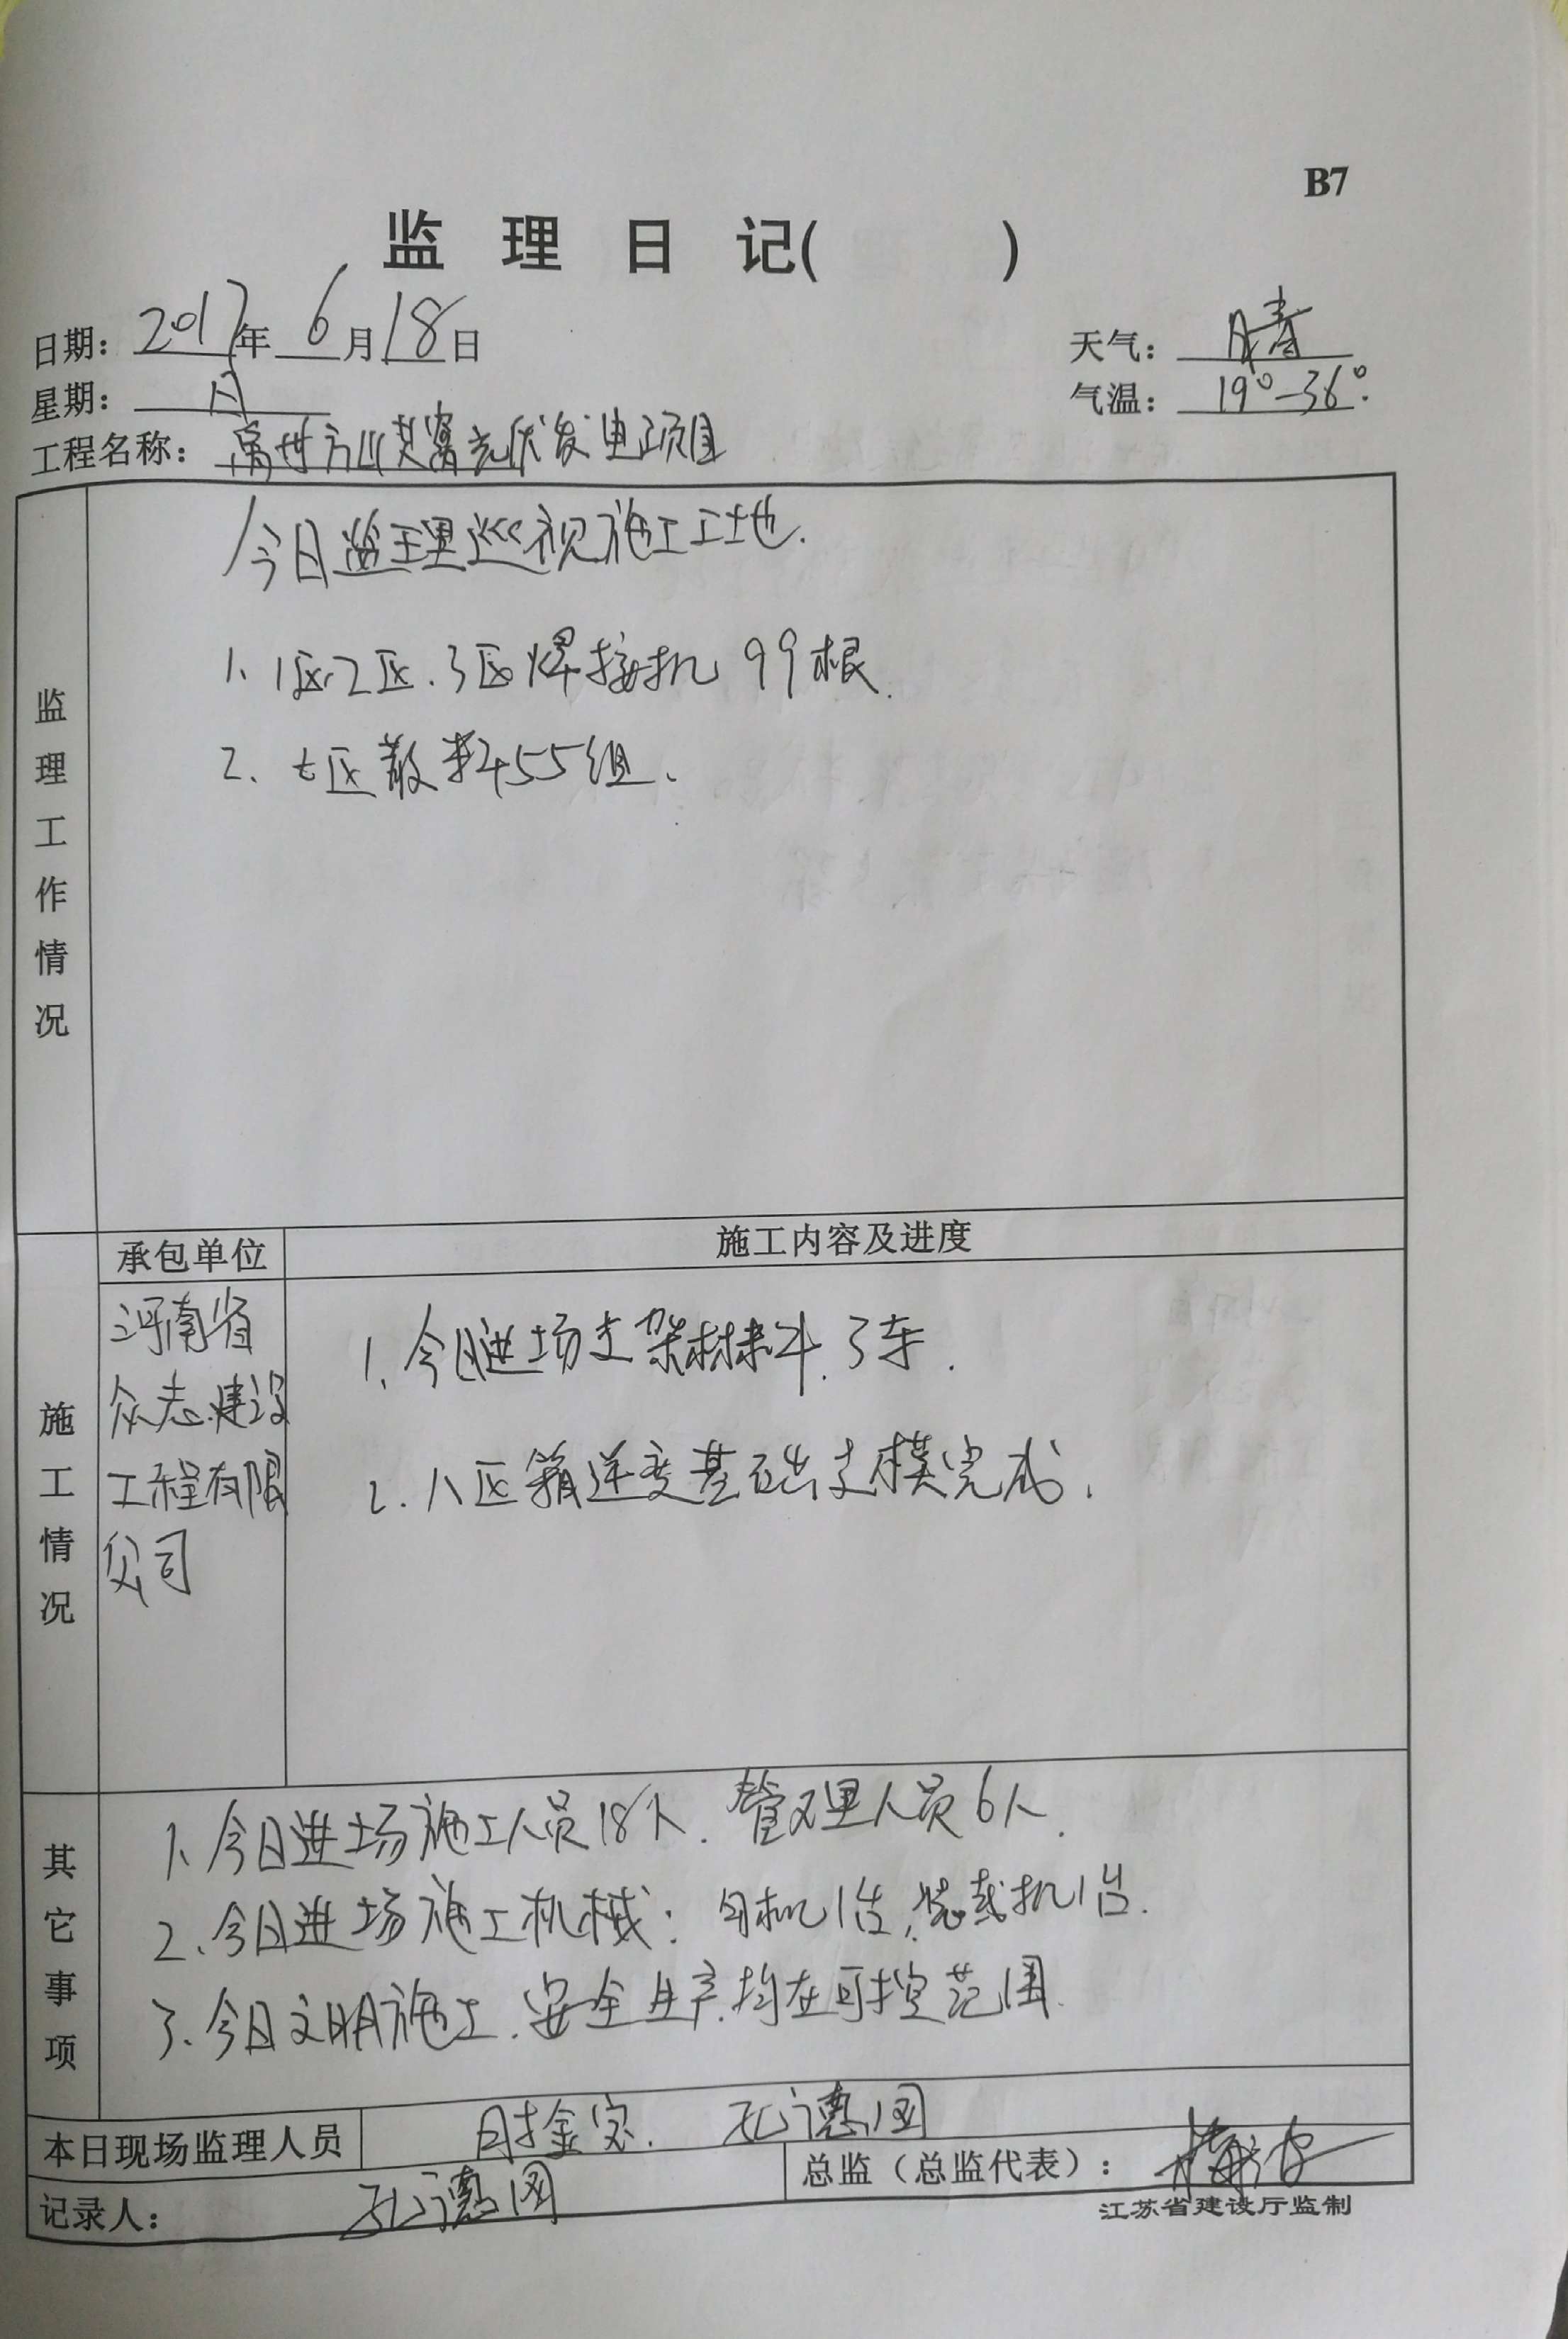 B7
监理日记( )
日期：2017年6月18日
天气：晴
星期：日
气温：19°-36°.
工程名称：禹州方山芨窝光伏发电项目
监理工作情况
今日监理巡视施工工地.
1、1区、2区、3区焊接桩99根.
2、七区散料455组、
承包单位
施工内容及进度
施工情况
河南省
众志建设
工程有限
公司
1、今日进场支架材料.3车.
2、八区箱逆变基础支模完成、
其它事项
1、今日进场施工人员18人.管理人员6人.
2、今日进场施工机械：勾机1台,装载机1台.
3、今日文明施工.安全生产.均在可控范围.
本日现场监理人员
时金宝、孔德国
总监（总监代表）：
记录人：孔德国
江苏省建设厅监制